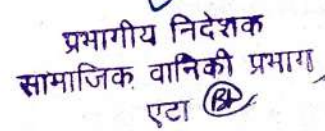 प्रभागीय निदेशक
सामाजिक वानिकी प्रभाग,
एटा